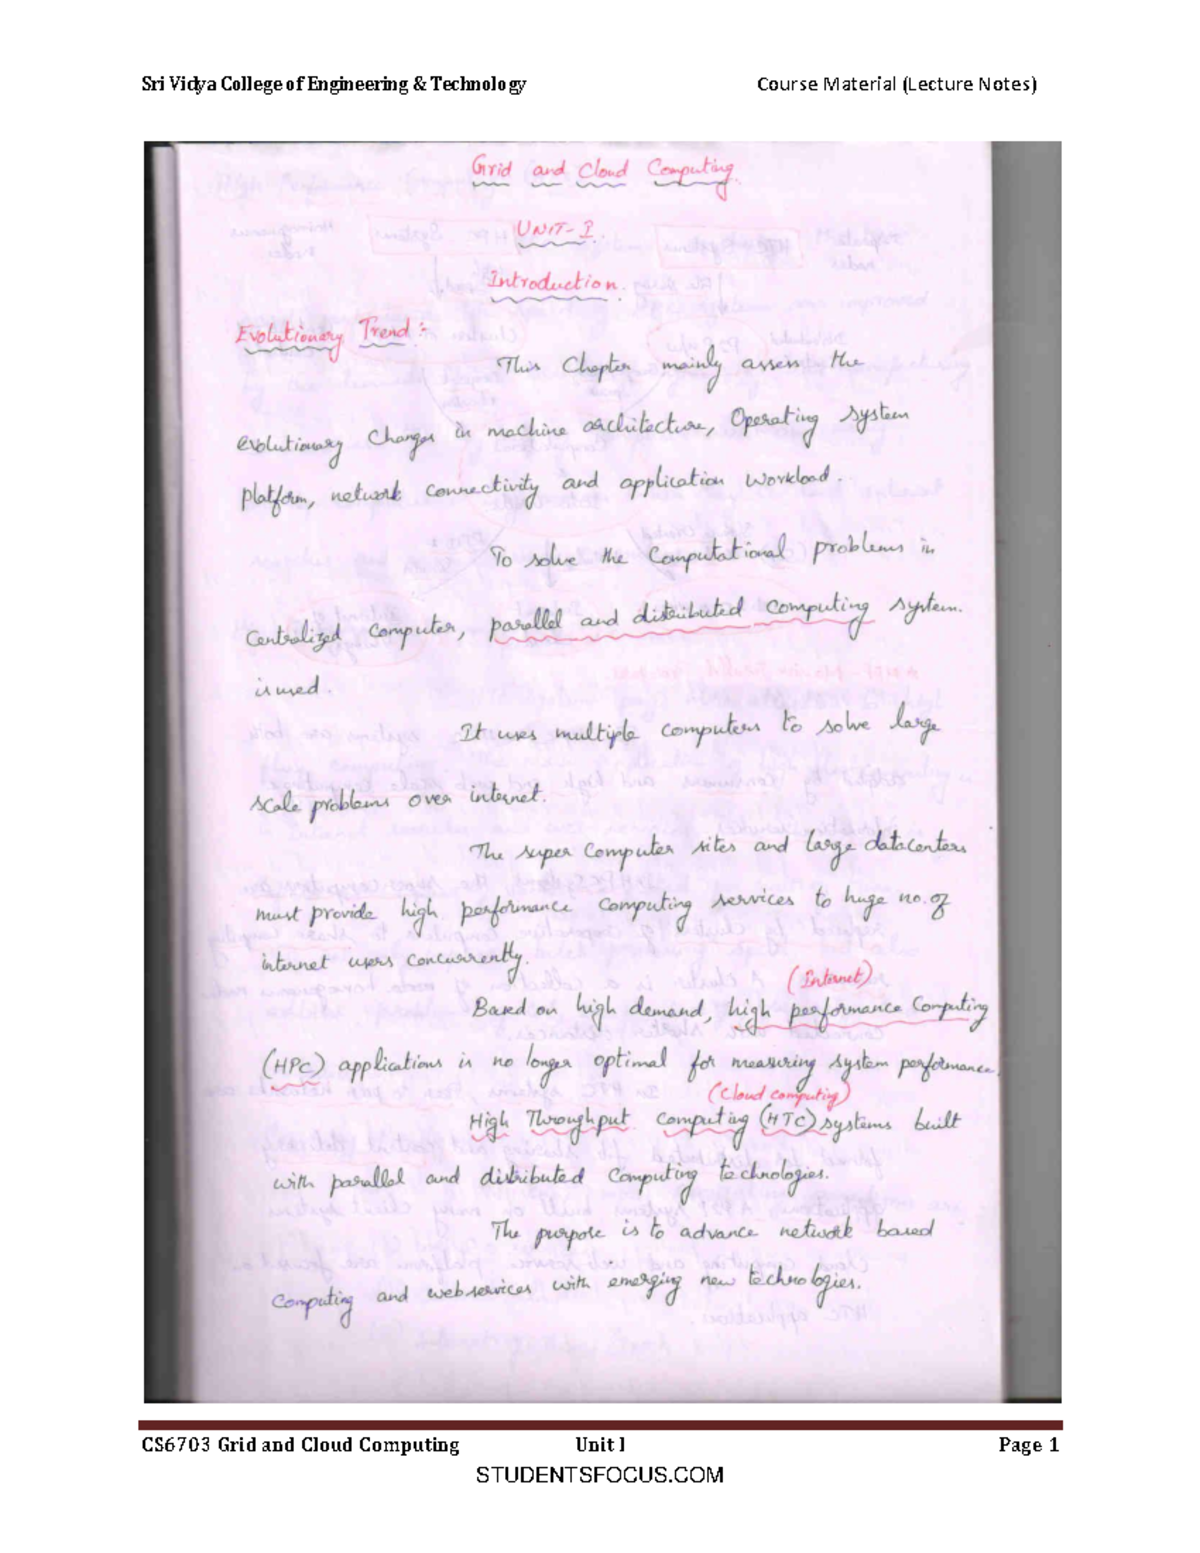 Sri Vidya College of Engineering & Technology Course Material (Lecture Notes)
Grid and Cloud Computing.
UNIT-I.
Introduction.
Evolutionary Trend:-
This Chapter mainly assess the
evolutionary changes in machine architecture, Operating system
platform, network connectivity and application workload.
To solve the Computational problems in
Centralized computer, parallel and distributed computing system.
is used.
It uses multiple computers to solve large
scale problems over internet.
The super Computer sites and large datacenters
must provide high performance computing services to huge no. of
internet users concurrently.
(Internet)
Based on high demand, high performance Computing
(HPC) applications is no longer optimal for measuring system performance.
(Cloud computing)
High Throughput Computing (HTC) systems built
with parallel and distributed Computing technologies.
The purpose is to advance network based
Computing and webservices with emerging new technologies.
CS6703 Grid and Cloud Computing Unit I Page 1
STUDENTSFOCUS.COM